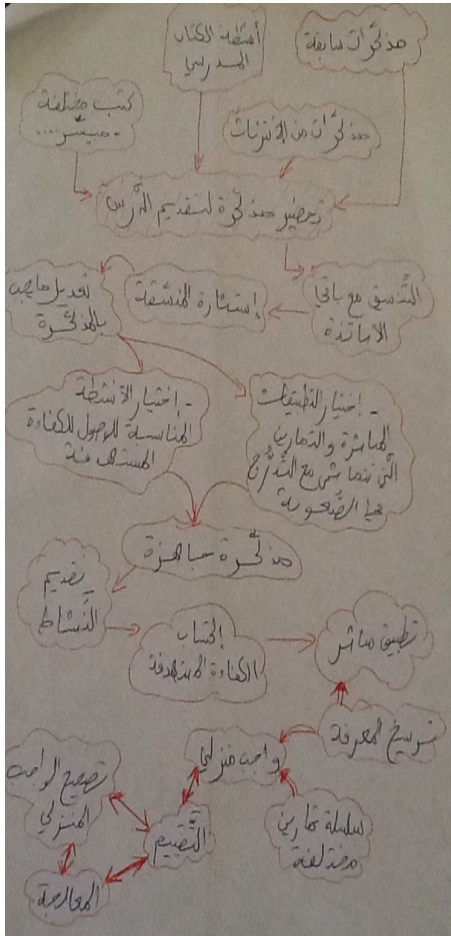 مذكّرات سابقة
أنشطة الكتاب
المدرسي
كتب مختلفة
- ميسّر...
مذكّرات من الانترنات
تحضير مذكّرة لتقديم الدّرس
التّنسيق مع باقي
الأساتذة
إستشارة المنسّقة
تعديل ما يجب
بالمذكّرة
- إختيار الأنشطة
المناسبة للوصول للكفاءة
المستهدفة
- إختيار التطبيقات
المباشرة والتمارين
الّتي تتماشى مع التّدرّج
في الصّعوبة
مذكّرة جاهزة
تقديم
النّشاط
إكتساب
الكفاءة المستهدفة
تطبيق مباشر
ترسيخ المعرفة
واجب منزلي
سلسلة تمارين
مختلفة
التّقييم
تصحيح الواجب
المنزلي
المعالجة